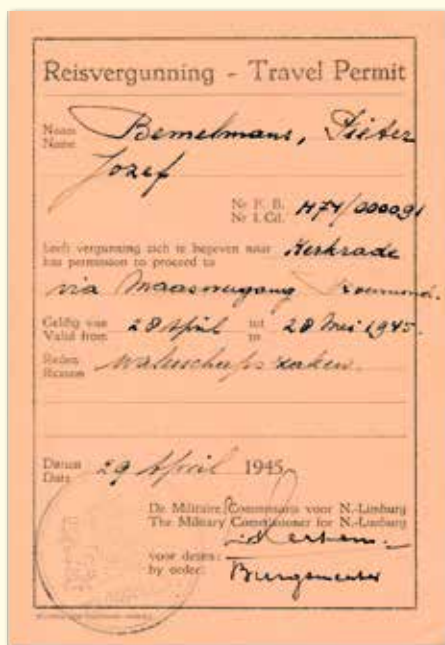 Reisvergunning - Travel Permit
Naam Bemelmans, Pieter
Name
Jozef
Nr P. B.
Nr I. Cd. H74/000091
heeft vergunning zich te begeven naar Kerkrade
has permission to proceed to
via Maasovergang Roermond.
Geldig van 28 April tot 28 Mei 1945.
Valid from to
Reden waterschapszaken.
Reason
Datum 29 April 1945
Date
De Militaire Commissaris voor N.-Limburg
The Military Commissioner for N.-Limburg
voor dezen:
by order: Burgemeester